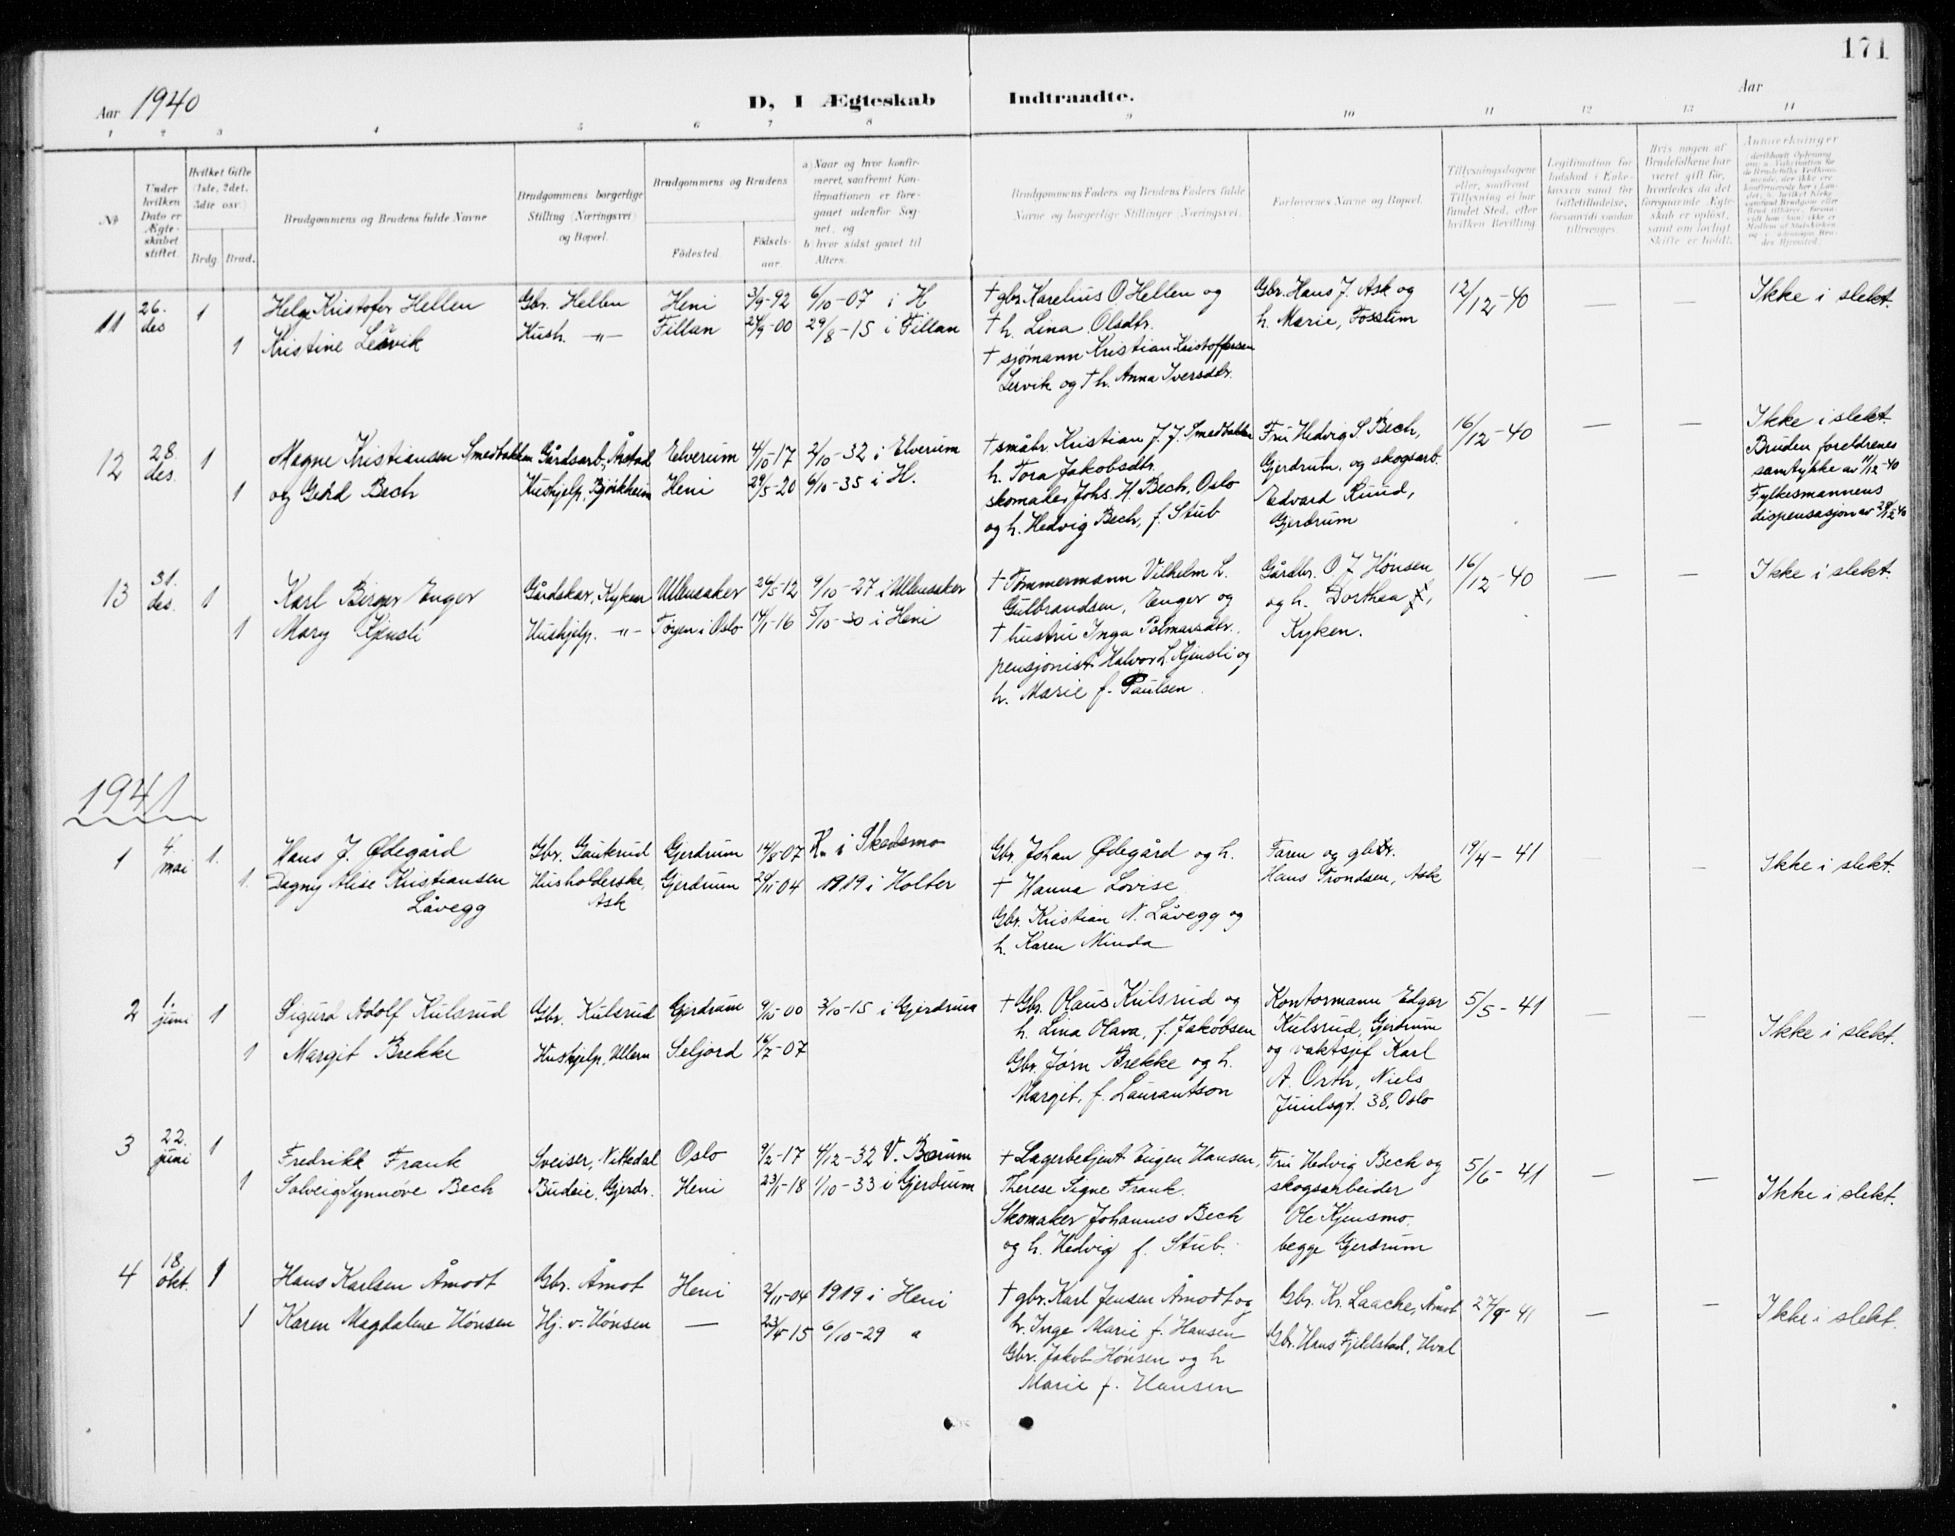 171
Aar 1940
D, I Ægteskab Indtraadte.
Aar
1 2 3 4 5 6 7 8 9 10 11 12 13 14
№
Under hvilken Dato er Ægteskabet stiftet.
Hvilket Gifte (1ste, 2det, 3dte osv.)
Brdg. Brud.
Brudgommens og Brudens fulde Navne
Brudgommens borgerlige Stilling (Næringsvei) og Bopæl.
Brudgommens og Brudens
Fødested. Fødselsaar.
a) Naar og hvor konfirmeret, saafremt Konfirmationen er foregaaet udenfor Sognet, og
b) hvor sidst gaaet til Alters.
Brudgommens Faders og Brudens Faders fulde Navne og borgerlige Stillinger (Næringsvei).
Forlovernes Navne og Bopæl.
Tillysningsdagene eller, saafremt Tillysning ei har fundet Sted, efter hvilken Bevilling
Legitimation for Indskud i Enkekassen samt for Giftetilladelse, forsaavidt saadan tiltrænges.
Hvis nogen af Brudefolkene har været gift før, hvorledes da det foregaaende Ægteskab er opløst, samt om lovligt Skifte er holdt.
Anmærkninger
11 26. des 1 Helge Kristofer Hellen Gbr. Hellen Heni 3/9-92 6/10-07 i H
1 Kristine Lervik Hush. -"- Fillan 24/9-00 29/8-15 i Fillan
† gbr. Karelius O. Hellen og
† h. Lina Olsdtr.
† sjømann Kristian Kristoffersen
Lervik og † h. Anna Iversdtr.
Gbr. Hans J. Ask og
h. Marie, Fosslim
12/12-40 — — Ikke i slekt.
12 28. des. 1 Magne Kristiansen Smedbakken Gårdsarb., Årstad Elverum 4/10-17 2/10-32 i Elverum
1 og Gerd Bech Hushjelp, Bjørkheim Heni 29/5-20 6/10-35 i H.
† småbr. Kristian J. J. Smedbakken
h. Tora Jakobsdtr.
skomaker Johs. H. Bech, Oslo
og h. Hedvig Bech, f. Stub
Fru Hedvig S Bech,
Gjerdrum, og skogsarb.
Edvard Ruud,
Gjerdrum
16/12-40 — —
Ikke i slekt.
Bruden foreldrenes
samtykke av 11/12-40
Fylkesmannens
dispensasjon av 28/12-40
13 31. des. 1 Karl Birger Enger Gårdskar, Kyken Ullensaker 26/5-12 9/10-27 i Ullensaker
1 Mary Kjensli Hushjelp. -"- Tøyen i Oslo 14/1-16 5/10-30 i Heni
† Tømmermann Vilhelm L.
Gulbrandsen, Enger og
† hustru Inga Polmarsdtr.
pensjonist Halvor L. Kjensli og
h. Marie f. Paulsen.
Gårdbr. O J Hønsen
og h. Dorthea,
Kyken.
16/12-40 — — Ikke i slekt.
1941
1 4. mai 1. Hans J. Ødegård Gbr. Gaukrud Gjerdrum 14/8-07 K. i Skedsmo
1. Dagny Alise Kristiansen Husholderske, Gjerdrum 29/11-04 1919 i Holter
Låvegg Ask
Gbr. Johan Ødegård og h.
† Hanna Lovise
Gbr. Kristian N. Låvegg og
h. Karen Minda
Faren og gbr.
Hans Trondsen, Ask
19/4-41 — — Ikke i slekt.
2 1. juni 1 Sigurd Adolf Kulsrud Gbr. Kulsrud Gjerdrum 9/10-00 3/10-15 i Gjerdrum
1 Margit Brekke Hushjelp, Ullern Seljord 16/7-07
† Gbr. Olaus Kulsrud og
h. Lina Olava, f. Jakobsen
Gbr. Jørn Brekke og h.
Margit, f. Laurantson
Kontormann Edgar
Kulsrud, Gjerdrum
og vaktsjef Karl
A. Orth, Niels
Juulsgt. 38, Oslo
5/5-41 — — Ikke i slekt.
3 22. juni 1 Fredrikk Frank Sveiser, Nittedal Oslo 9/2-17 4/12-32 V. Bærum
1 Solveig Synnøve Bech Budeie, Gjerdr. Heni 23/1-18 1/10-33 i Gjerdrum
† Lagerbetjent Eugen Hansen,
Therese Signe Frank.
Skomaker Johannes Bech
og h. Hedvig f. Stub.
Fru Hedvig Bech og
skogsarbeider
Ole Kjensmo.
begge Gjerdrum
5/6-41 — — Ikke i slekt.
4 18. okt. 1 Hans Karlsen Åmodt Gbr. Åmot Heni 2/11-04 1919 i Heni
1 Karen Magdalene Hønsen Hj. v. Hønsen — 23/5-15 6/10-29 "
† gbr. Karl Jensen Åmodt og
h. Inge Marie f. Hansen
Gbr. Jakob Hønsen og h
Marie f. Hansen
Gbr. Kr. Laache, Åmot
Gbr. Hans Fjeldstad, Hval
27/9-41 — — Ikke i slekt.